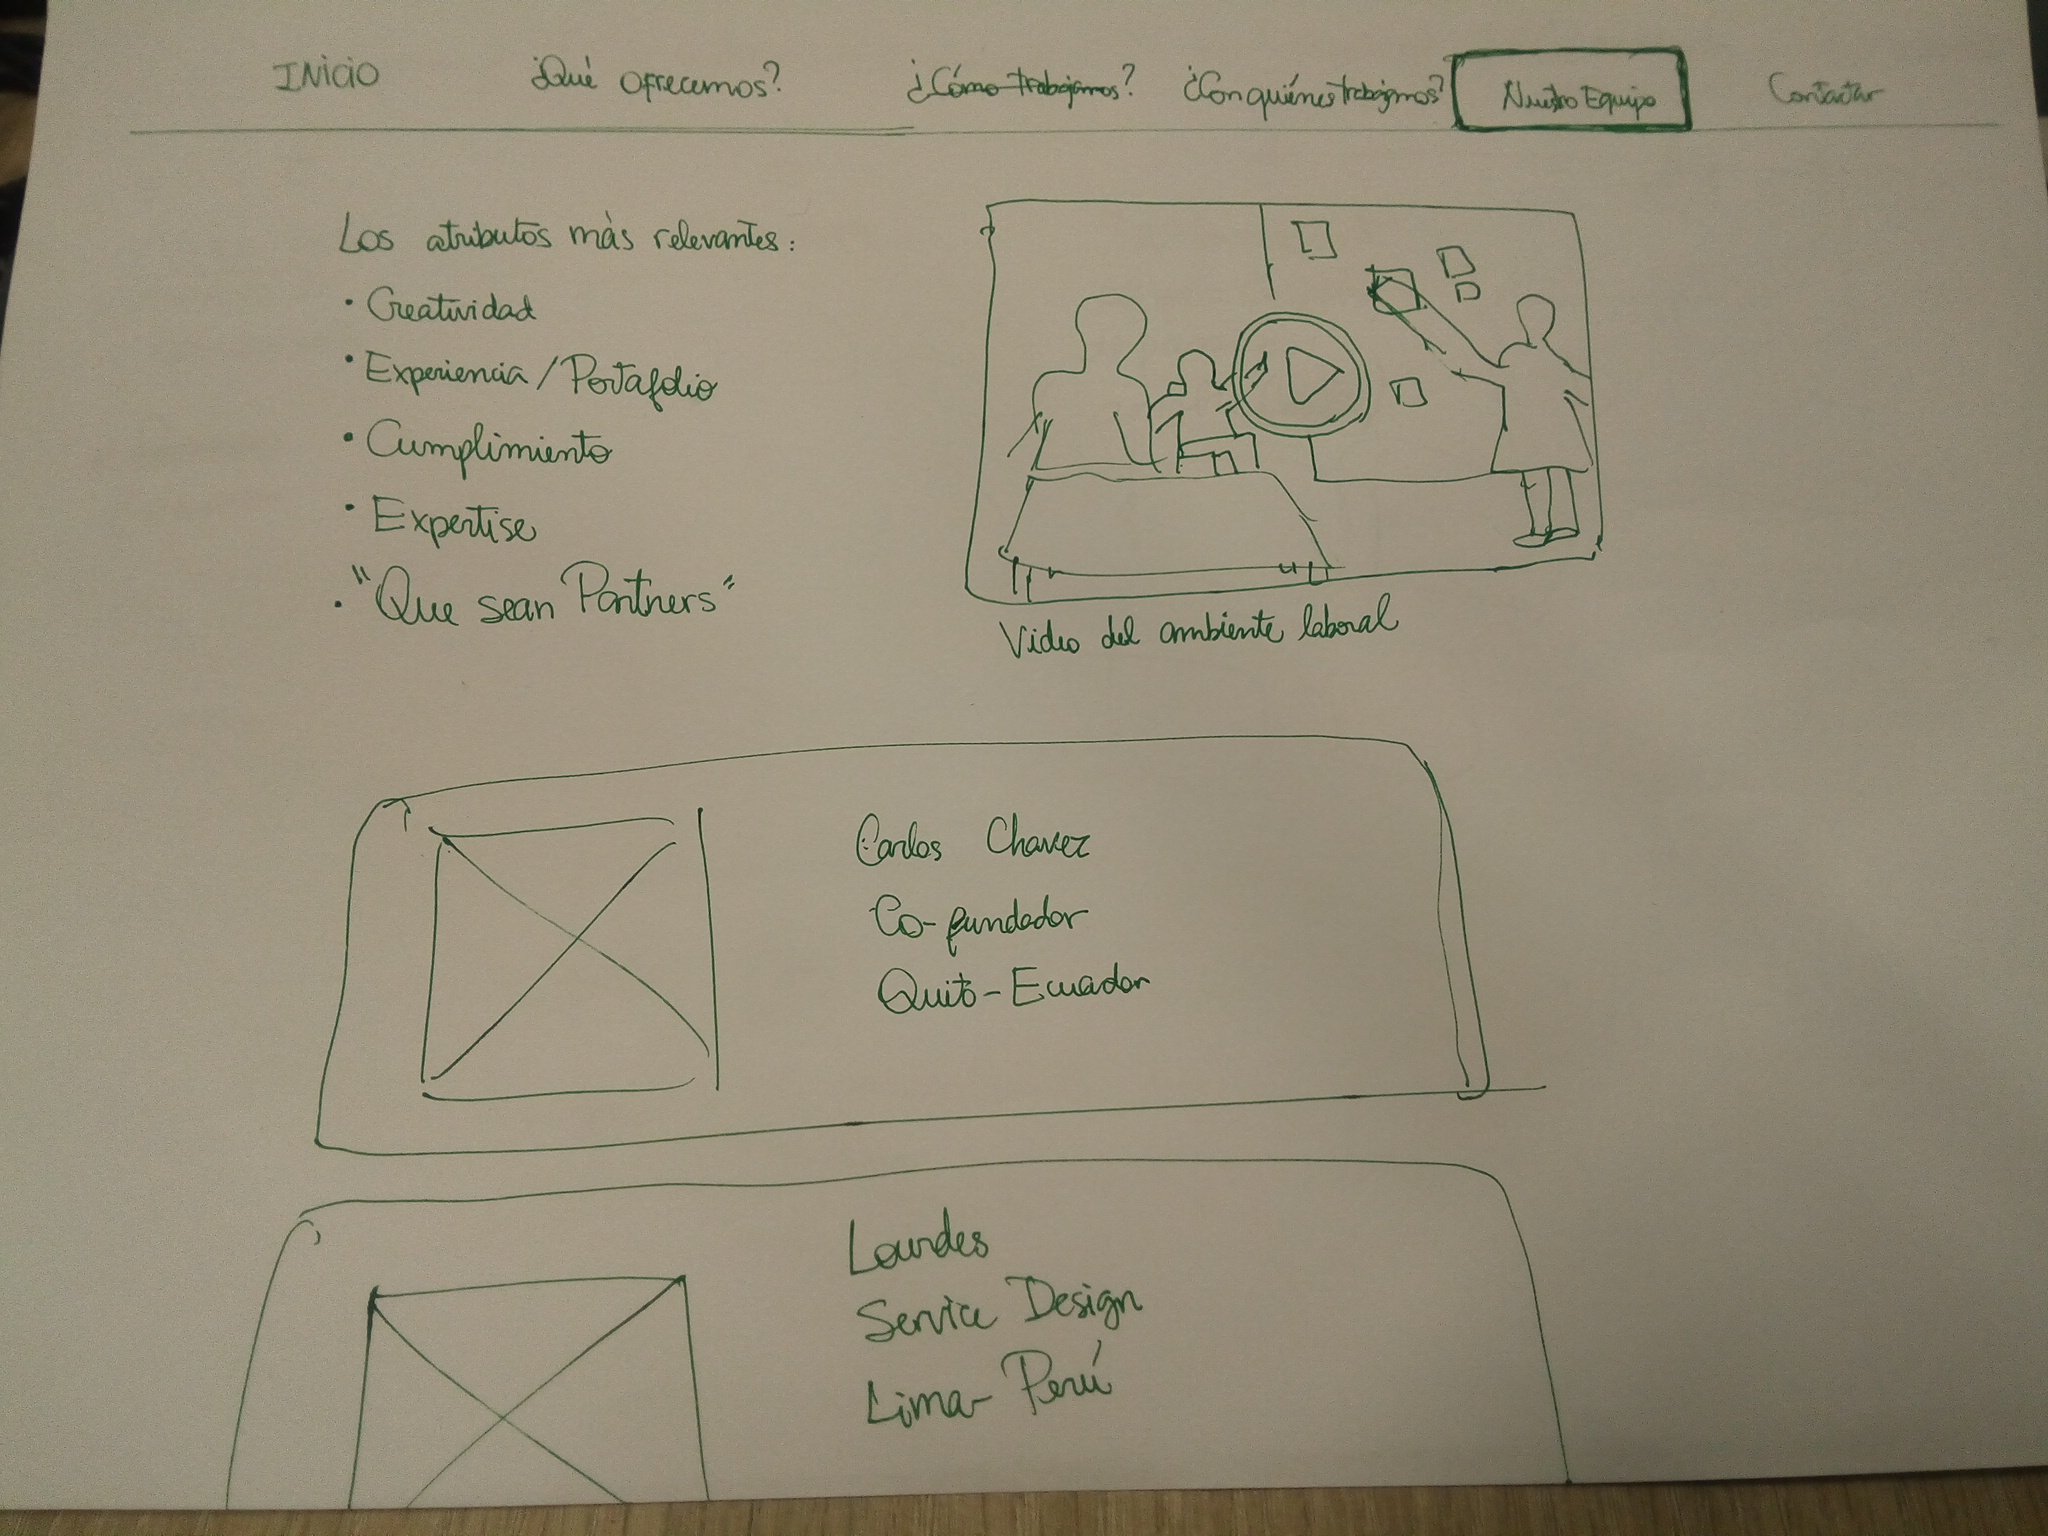 INICIO
¿Qué ofrecemos?
¿Cómo trabajamos?
¿Con quiénes trabajamos?
Nuestro Equipo
Contactar
Los atributos más relevantes:
• Creatividad
• Experiencia / Portafolio
• Cumplimiento
• Expertise
• "Que sean Partners"
Video del ambiente laboral
Carlos Chavez
Co-fundador
Quito - Ecuador
Lourdes
Service Design
Lima - Perú